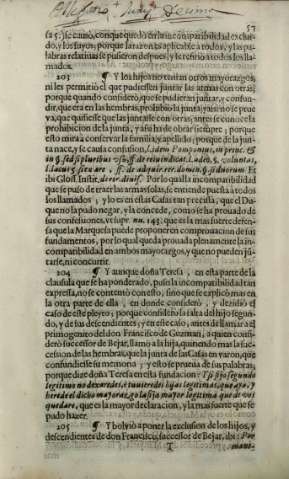 57
sa 5. se causò, con que quedò cierta la incompatibilidad excludo,
y los suyos, porque la razon es aplicable à todos, y las palabras
relatiuas se pusieron despues, y le refirio à todos los llamados.
203 ¶ Y los hijos no tenian otros mayorazgos,
ni les permitiò el que pudiessen juntar las armas con otras,
porque quando considerò, que se pudieran juntar, y confundir,
que era en las hembras, prohibiò la junta, y assi no se prueva,
que quisiesse que las juntasse con otras, antes se conoce la
prohibicion de la junta, y assi ha de obrar siempre; porque
esto mira à conservar la familia, y apellido; porque de la junta
nace, y se causa confusion,
Por lo qual la incompatibilidad
que se puso de traer las armas solas, se entiende puesta à todos
los llamados, y lo es en estas Casas tan precisa, que el Duque
no la pudo negar, y la concede, como se ha prouado de
sus confessiones, vt supr. nu. 149. que es la mas fuerte defensa
que la Marquesa puede proponer en comprouacion de sus
fundamentos, por lo qual queda prouada plenamente la incompatibilidad
en ambos mayorazgos, y que no pueden juntarse,
ni concurrir.
204 ¶ Y aunque doña Teresa, en esta parte de la
clausula que se ha ponderado, puso la incompatibilidad tan
expressa, no se contentò con esto, sino que se explicò mas en
la otra parte de ella, en donde considerò, y decidiò el
caso de este pleyto; porque considerò la falta del hijo segundo,
y de sus descendientes, y en este caso, antes de llamar à el
primogenito de don Francisco de Guzman, à quien considerò
successor de Bejar, llamo à la hija, queriendo mas la sucession
de las hembras, que la junta de las Casas en varon, que
confundiesse su memoria; y esto se prueua de sus palabras,
porque dize doña Teresa en esta fundacion: Y si hijo segundo
legitimo no dexaredes, è tuuieredes hijas legitimas, que aya, y
herede el dicho mayorazgo la hija mayor legitima que de vos
quedare, que es la mayor declaracion, y la mas fuerte que se
pudo hazer.
205 ¶ Y boluiò a poner la exclusion de los hijos, y
descendientes de don Francisco, successor de Bejar, ibi: Por
T